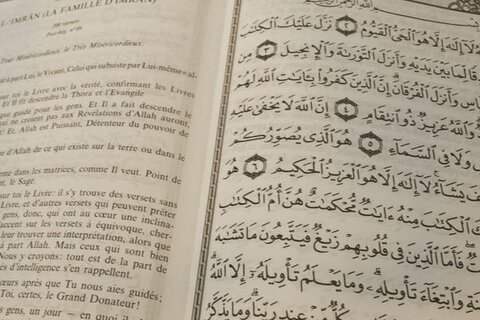 L-'IMRĀN (LA FAMILLE D'IMRAN)
200 versets
Post-hég. n° 89
Tout Miséricordieux, le Très Miséricordieux.
é à part Lui, le Vivant, Celui qui subsiste par Lui-même «al-
sur toi le Livre avec la vérité, confirmant les Livres
Et Il fit descendre la Thora et l'Evangile
que guide pour les gens. Et Il a fait descendre le
ui ne croient pas aux Révélations d'Allah auront,
Et, Allah est Puissant, Détenteur du pouvoir de
e d'Allah de ce qui existe sur la terre ou dans le
rme dans les matrices, comme Il veut. Point de
t, le Sage.
sur toi le Livre: il s'y trouve des versets sans
e, et d'autres versets qui peuvent prêter
s gens, donc, qui ont au cœur une inclina-
accent sur les versets à équivoque, cher-
leur trouver une interprétation, alors que
à part Allah. Mais ceux qui sont bien
Nous y croyons: tout est de la part de
s d'intelligence s'en rappellent.
cœurs après que Tu nous aies guidés;
Toi, certes, le Grand Donateur!
es gens, un jour – en quoi il
لَآ إِلَٰهَ إِلَّا هُوَ ٱلْحَىُّ ٱلْقَيُّومُ ٢ نَزَّلَ عَلَيْكَ ٱلْكِتَٰبَ
قًا لِّمَا بَيْنَ يَدَيْهِ وَأَنزَلَ ٱلتَّوْرَىٰةَ وَٱلْإِنجِيلَ ٣
اسِ وَأَنزَلَ ٱلْفُرْقَانَ إِنَّ ٱلَّذِينَ كَفَرُوا۟ بِـَٔايَٰتِ ٱللَّهِ لَهُمْ
وَٱللَّهُ عَزِيزٌ ذُو ٱنتِقَامٍ ٤ إِنَّ ٱللَّهَ لَا يَخْفَىٰ عَلَيْهِ
وَلَا فِى ٱلسَّمَآءِ ٥ هُوَ ٱلَّذِى يُصَوِّرُكُمْ
يَشَآءُ لَآ إِلَٰهَ إِلَّا هُوَ ٱلْعَزِيزُ ٱلْحَكِيمُ ٦ هُوَ
كَ ٱلْكِتَٰبَ مِنْهُ ءَايَٰتٌ مُّحْكَمَٰتٌ هُنَّ أُمُّ ٱلْكِتَٰبِ
تٌ فَأَمَّا ٱلَّذِينَ فِى قُلُوبِهِمْ زَيْغٌ فَيَتَّبِعُونَ مَا تَشَٰبَهَ
نَةِ وَٱبْتِغَآءَ تَأْوِيلِهِۦ وَمَا يَعْلَمُ تَأْوِيلَهُۥٓ إِلَّا ٱللَّهُ
كُلٌّ مِّنْ عِندِ رَبِّنَا وَمَا يَذَّكَّرُ